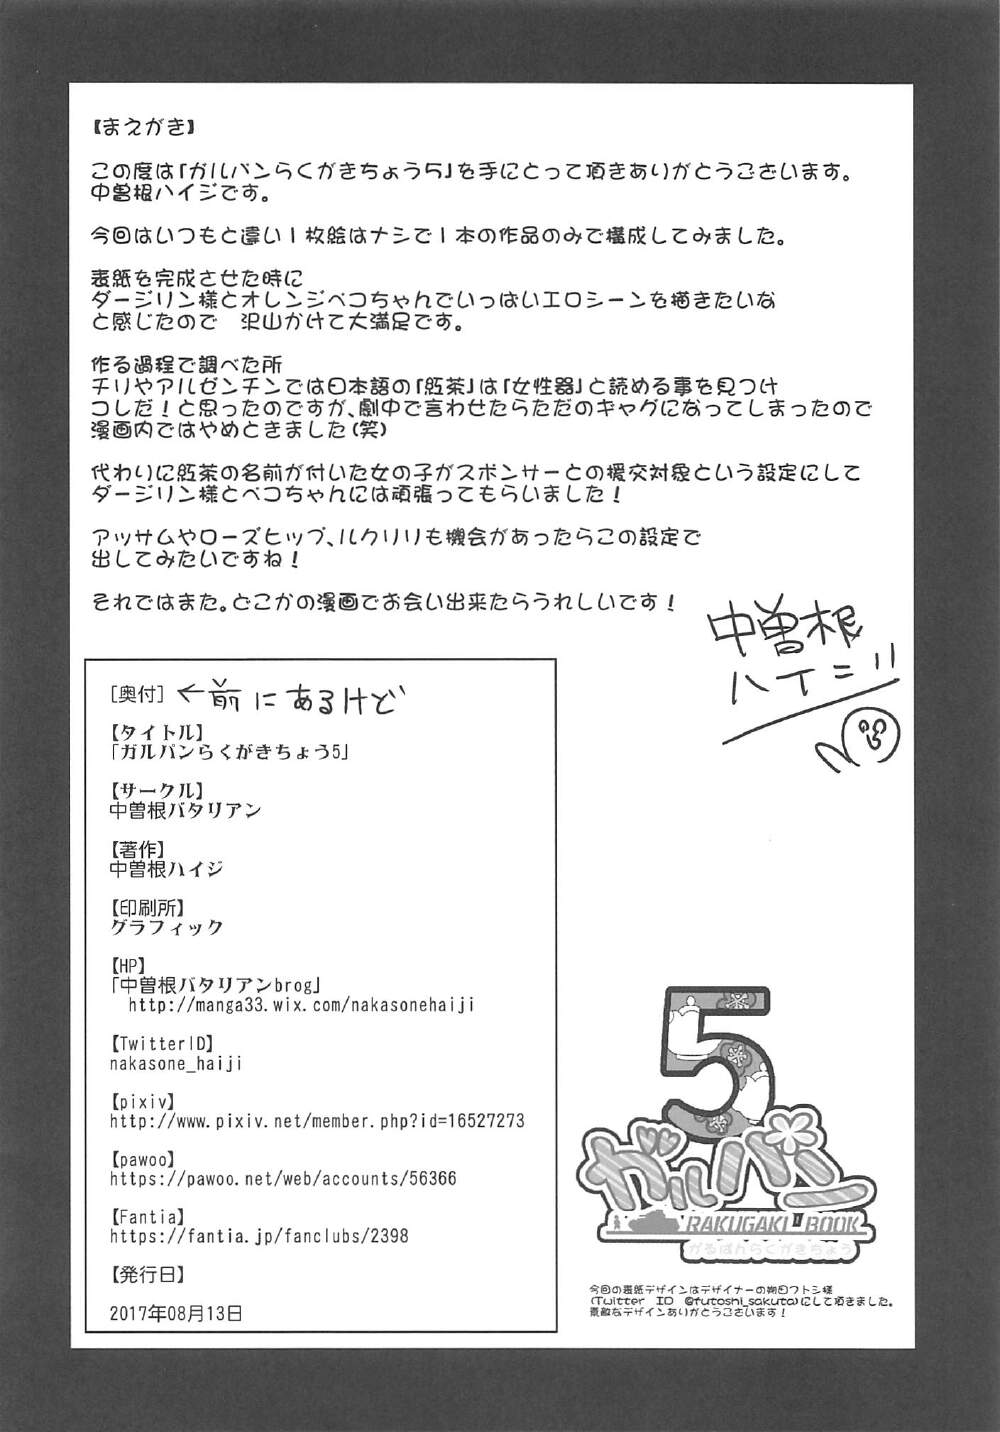 【まえがき】
この度は「ガルパンらくがきちょう5」を手にとって頂きありがとうございます。
中曽根ハイジです。
今回はいつもと違い1枚絵はナシで1本の作品のみで構成してみました。
表紙を完成させた時に
ダージリン様とオレンジペコちゃんでいっぱいエロシーンを描きたいな
と感じたので　沢山かけて大満足です。
作る過程で調べた所
チリやアルゼンチンでは日本語の「紅茶」は「女性器」と読める事を見つけ
コレだ！と思ったのですが、劇中で言わせたらただのギャグになってしまったので
漫画内ではやめときました(笑)
代わりに紅茶の名前が付いた女の子がスポンサーとの援交対象という設定にして
ダージリン様とペコちゃんには頑張ってもらいました！
アッサムやローズヒップ、ルクリリも機会があったらこの設定で
出してみたいですね！
それではまた。どこかの漫画でお会い出来たらうれしいです！
中曽根
ハイジ
[奥付] ←前にあるけど
【タイトル】
「ガルパンらくがきちょう5」
【サークル】
中曽根バタリアン
【著作】
中曽根ハイジ
【印刷所】
グラフィック
【HP】
「中曽根バタリアンbrog」
http://manga33.wix.com/nakasonehaiji
【TwitterID】
nakasone_haiji
【pixiv】
http://www.pixiv.net/member.php?id=16527273
【pawoo】
https://pawoo.net/web/accounts/56366
【Fantia】
https://fantia.jp/fanclubs/2398
【発行日】
2017年08月13日
5
ガルパン
RAKUGAKI BOOK
がるぱんらくがきちょう
今回の表紙デザインはデザイナーの朔田フトシ様
(Twitter ID @futoshi_sakuta)にして頂きました。
素敵なデザインありがとうございます！